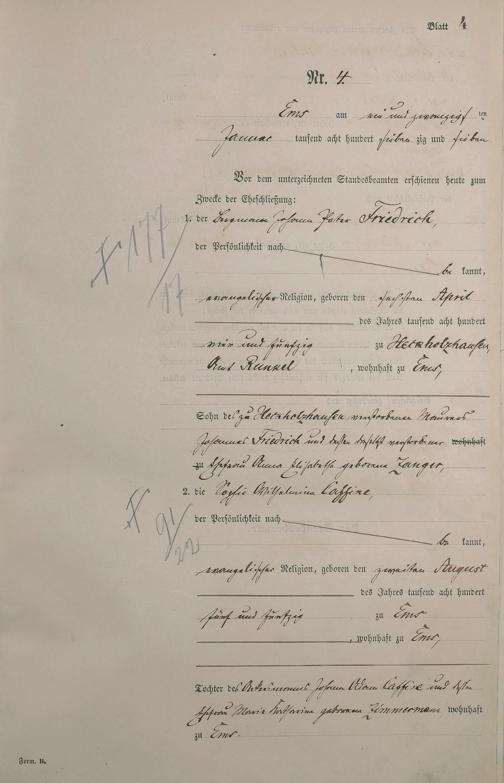 Blatt 4
Nr. 4.
Ems am ein und zwanzigsten
Januar tausend acht hundert sieben zig und sieben
Vor dem unterzeichneten Standesbeamten erschienen heute zum
Zwecke der Eheschließung:
1. der Bergmann Johann Peter Friedrich,
der Persönlichkeit nach
be kannt,
evangelischer Religion, geboren den sechsten April
des Jahres tausend acht hundert
vier und fünfzig zu Heckholzhausen,
Amt Runkel, wohnhaft zu Ems,
Sohn des zu Heckholzhausen verstorbenen Maurers
Johannes Friedrich und dessen daselbst verstorbener wohnhaft
zu Ehefrau Anna Elisabeth geborene Zanger,
2. die Sophie Wilhelmine Caffine,
der Persönlichkeit nach
be kannt,
evangelischer Religion, geboren den zweiten August
des Jahres tausend acht hundert
fünf und fünfzig zu Ems
, wohnhaft zu Ems,
Tochter des Ackermanns Johann Adam Caffine und dessen
Ehefrau Marie Katharine geborenen Zimmermann wohnhaft
zu Ems.
F 177
17
F 91
22
Form. B.